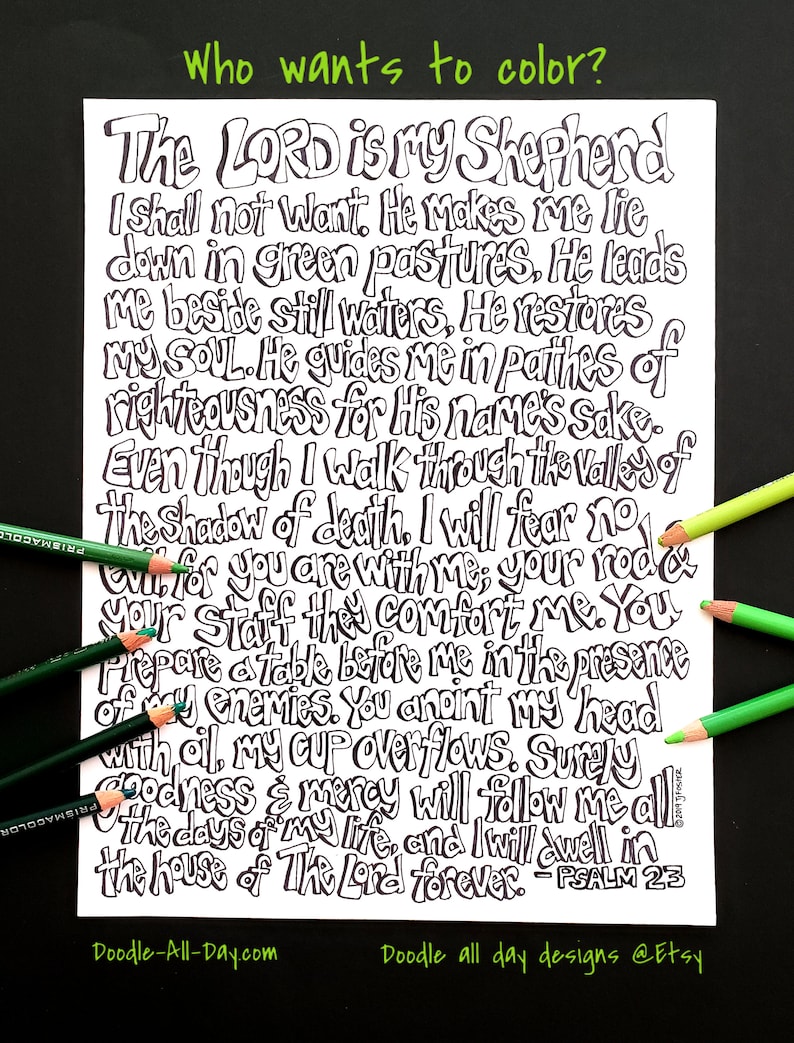 Who wants to color?
The LORD is my Shepherd
I shall not want. He makes me lie
down in green pastures, He leads
me beside still waters, He restores
my SOUL. He guides me in pathes of
righteousness for His name's sake.
Even though I walk through the valley of
the shadow of death, I will fear no
evil, for you are with me; your rod &
your staff they comfort me. You
prepare a table before me in the presence
of my enemies. You anoint my head
with oil, my cup overflows. Surely
goodness & mercy will follow me all
the days of my life, and I will dwell in
the house of The Lord forever. - PSALM 23
©2019 JFOSTER
PRISMACOLOR
PRISMACOLOR
Doodle-All-Day.com
Doodle all day designs @Etsy